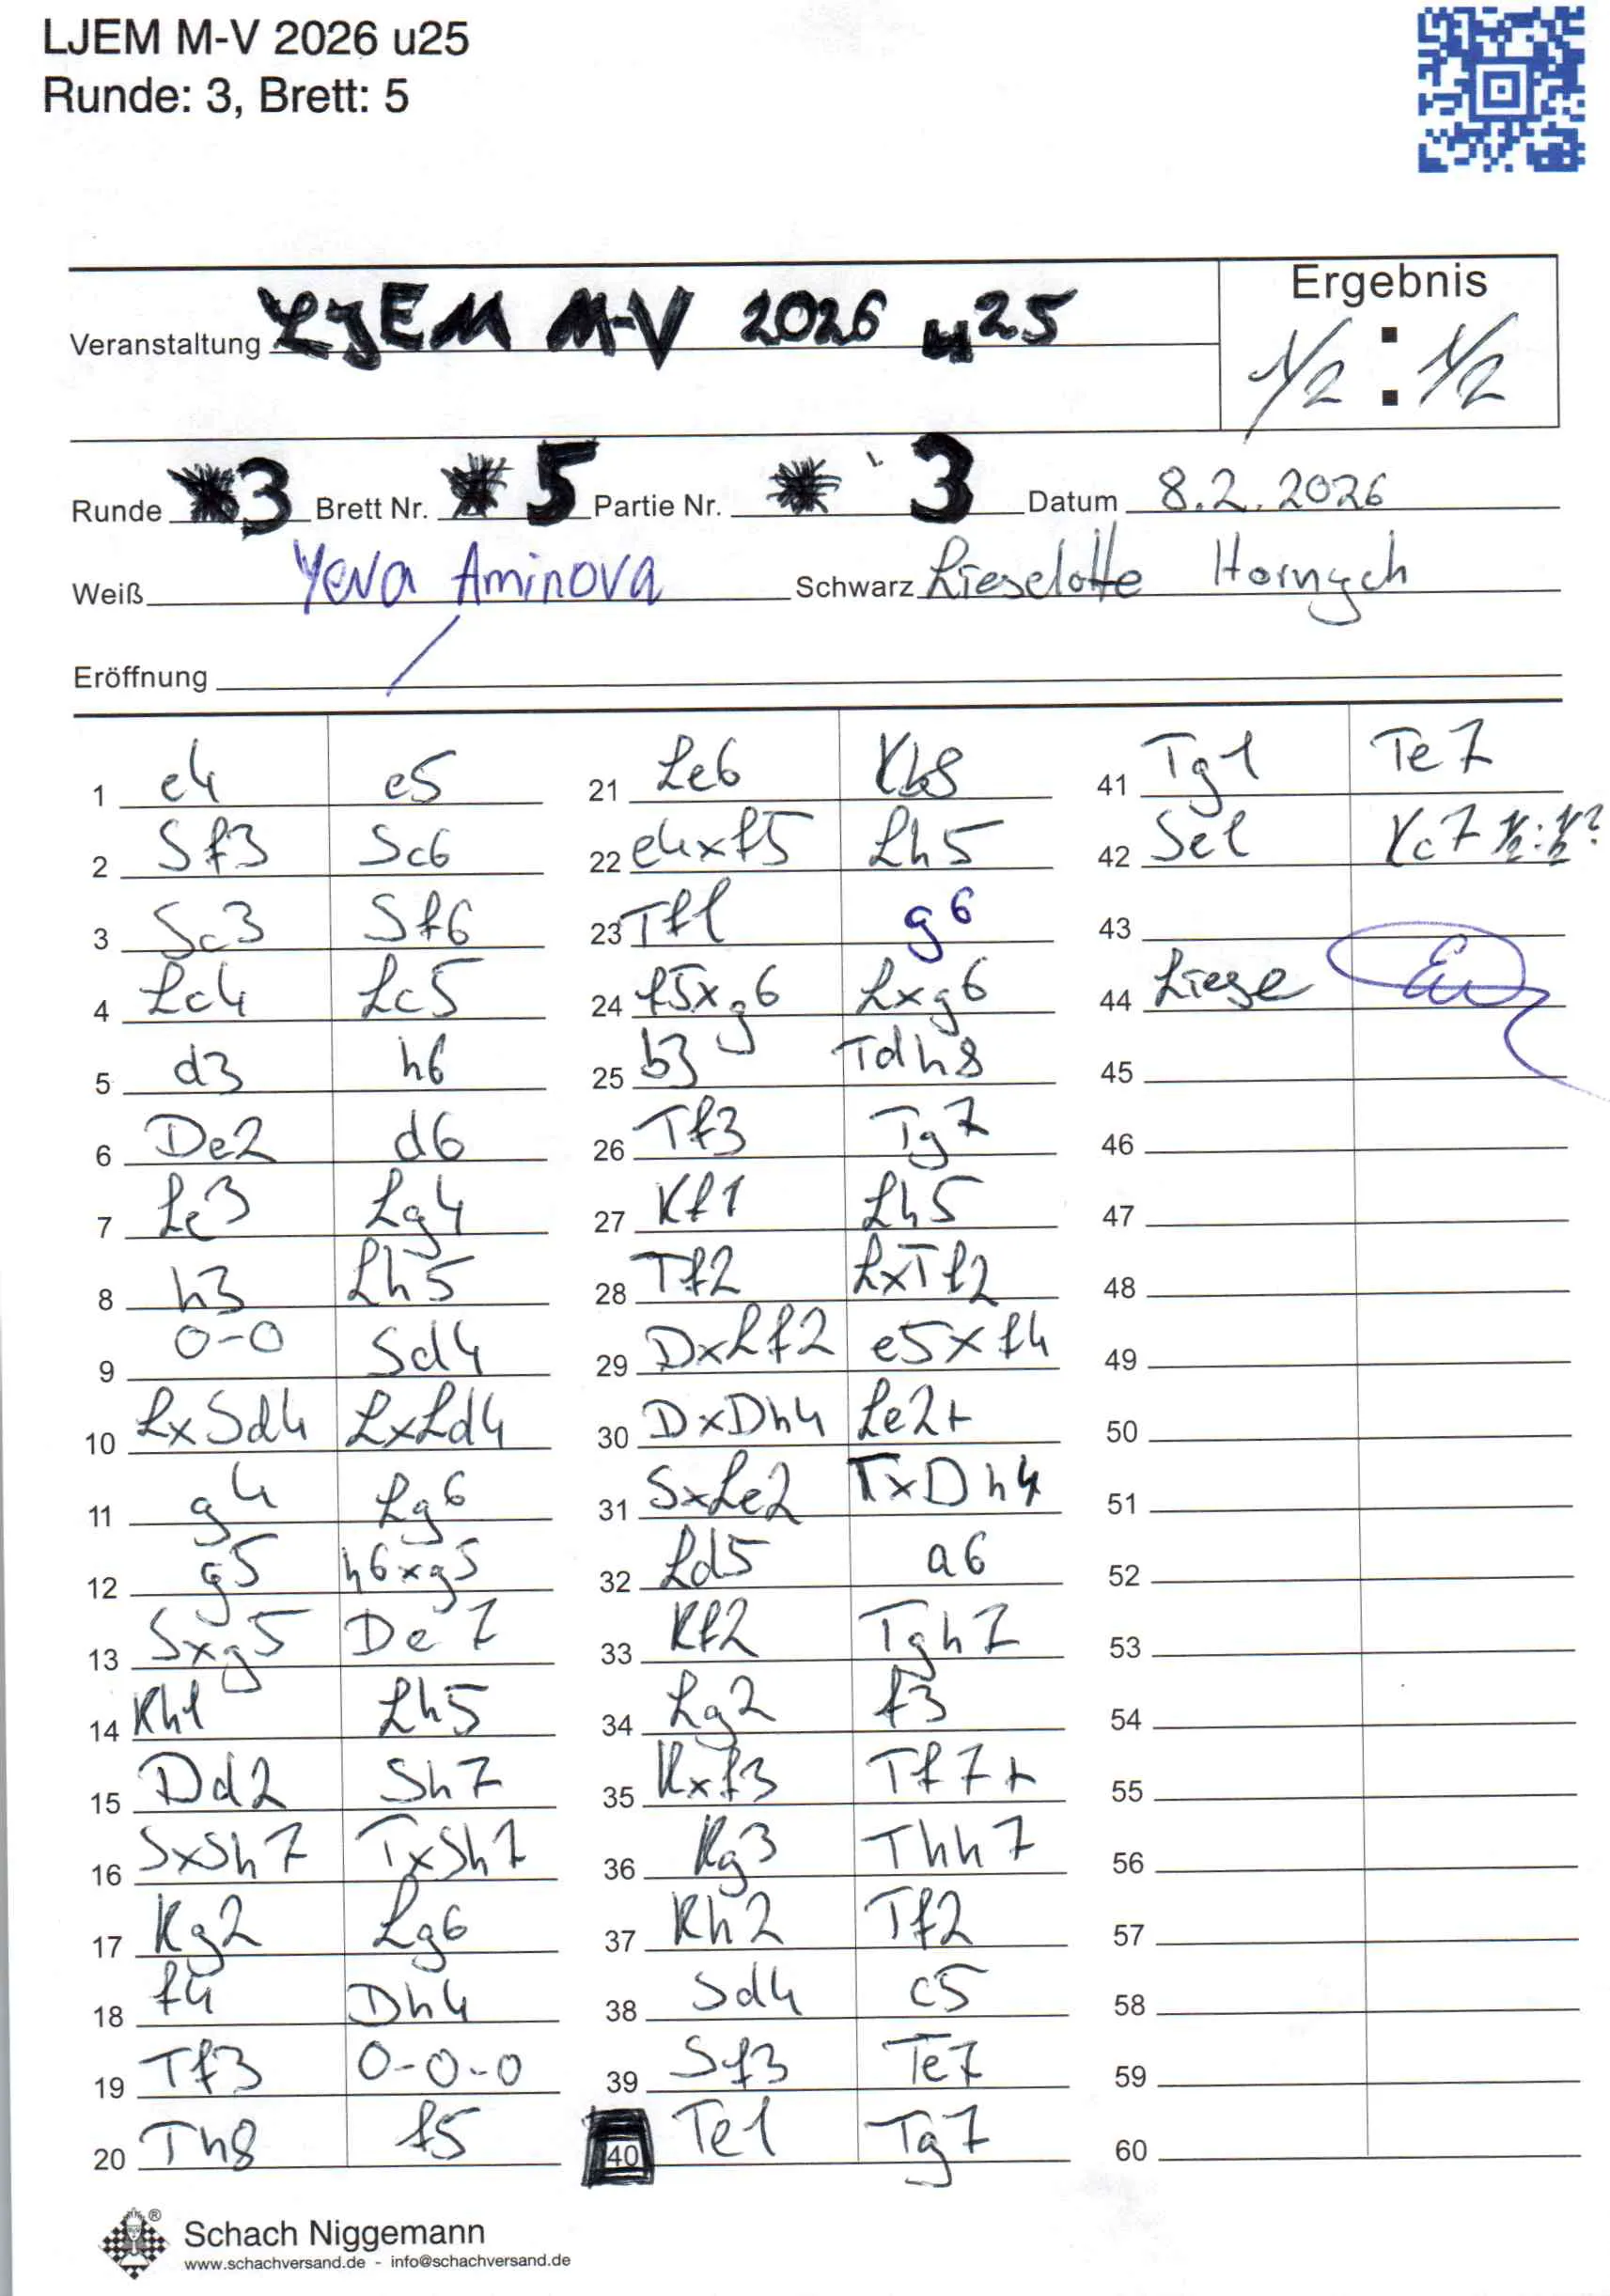 LJEM M-V 2026 u25
Runde: 3, Brett: 5
Ergebnis
Veranstaltung LJEM M-V 2026 u25
1/2 : 1/2
Runde 3 Brett Nr. 5 Partie Nr. 3 Datum 8.2.2026
Weiß Yeva Aminova Schwarz Lieselotte Hornych
Eröffnung
1 e4 e5
2 Sf3 Sc6
3 Sc3 Sf6
4 Lc4 Lc5
5 d3 h6
6 De2 d6
7 Le3 Lg4
8 h3 Lh5
9 0-0 Sd4
10 LxSd4 LxLd4
11 g4 Lg6
12 g5 h6xg5
13 Sxg5 De7
14 Kh1 Lh5
15 Dd2 Sh7
16 SxSh7 TxSh7
17 Kg2 Lg6
18 f4 Dh4
19 Tf3 0-0-0
20 Th8 f5
21 Le6 Kb8
22 e4xf5 Lh5
23 Tf1 g6
24 f5xg6 Lxg6
25 b3 Tdh8
26 Tf3 Tg7
27 Kf1 Lh5
28 Tf2 LxTf2
29 DxLf2 e5xf4
30 DxDh4 Le2+
31 SxLe2 TxDh4
32 Ld5 a6
33 Kf2 Tgh7
34 Lg2 f3
35 Kxf3 Tf7+
36 Kg3 Thh7
37 Kh2 Tf2
38 Sd4 c5
39 Sf3 Te7
40 Te1 Tg7
41 Tg1 Te7
42 Se1 Kc7 1/2:1/2?
43
44 Liese
45
46
47
48
49
50
51
52
53
54
55
56
57
58
59
60
Schach Niggemann
www.schachversand.de - info@schachversand.de